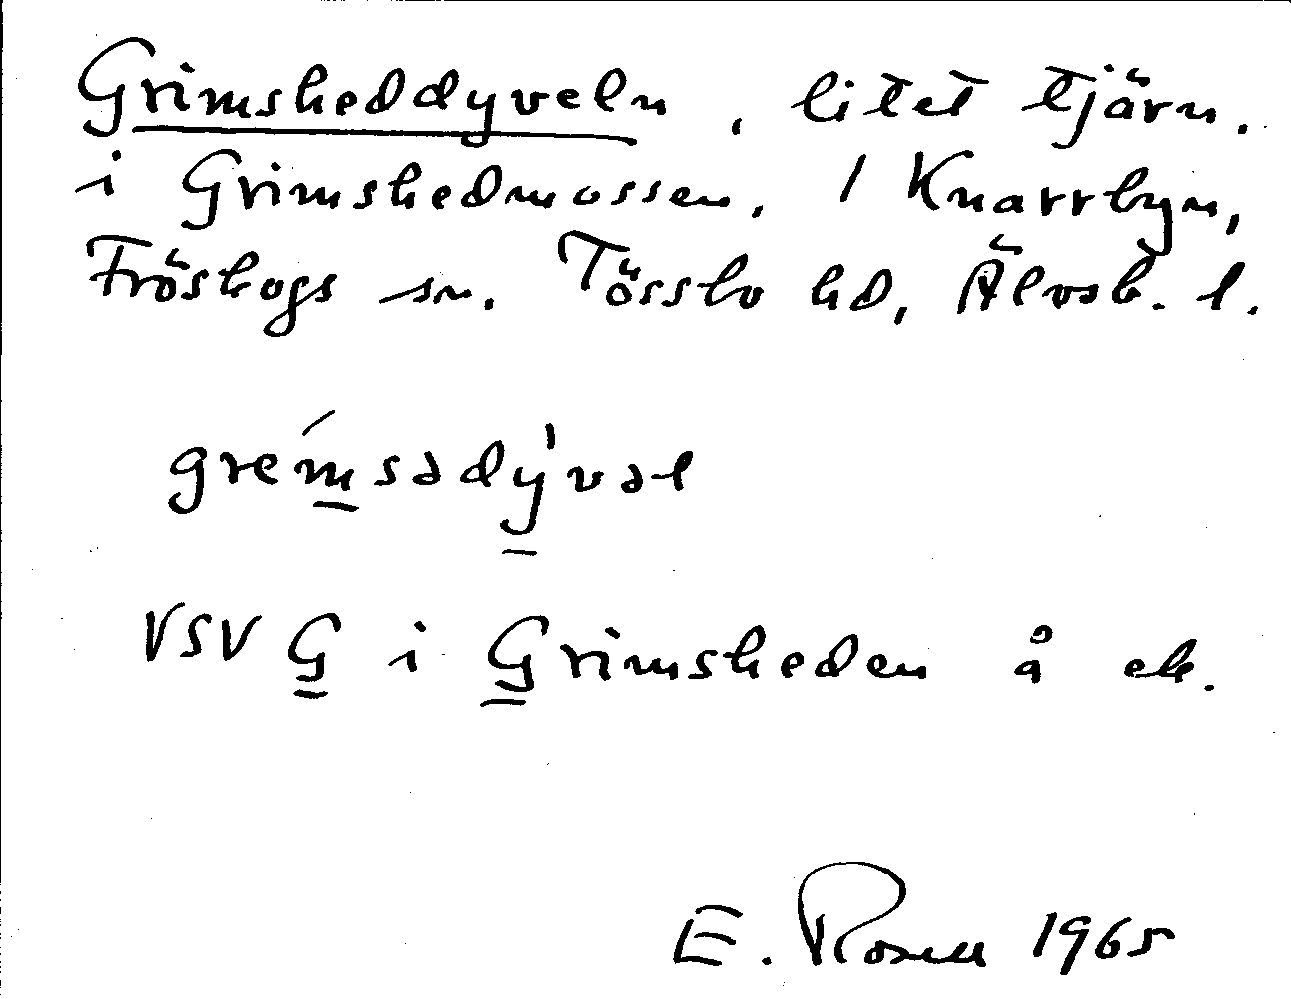 Grimsheddyveln, litet tjärn.
i Grimshedmossen. / Knarrbyn,
Fröskogs sn. Tössbo hd, Älvsb. l.
gre´msədy'vəl
VSV G i Grimsheden å ek.
E. Rosell 1965